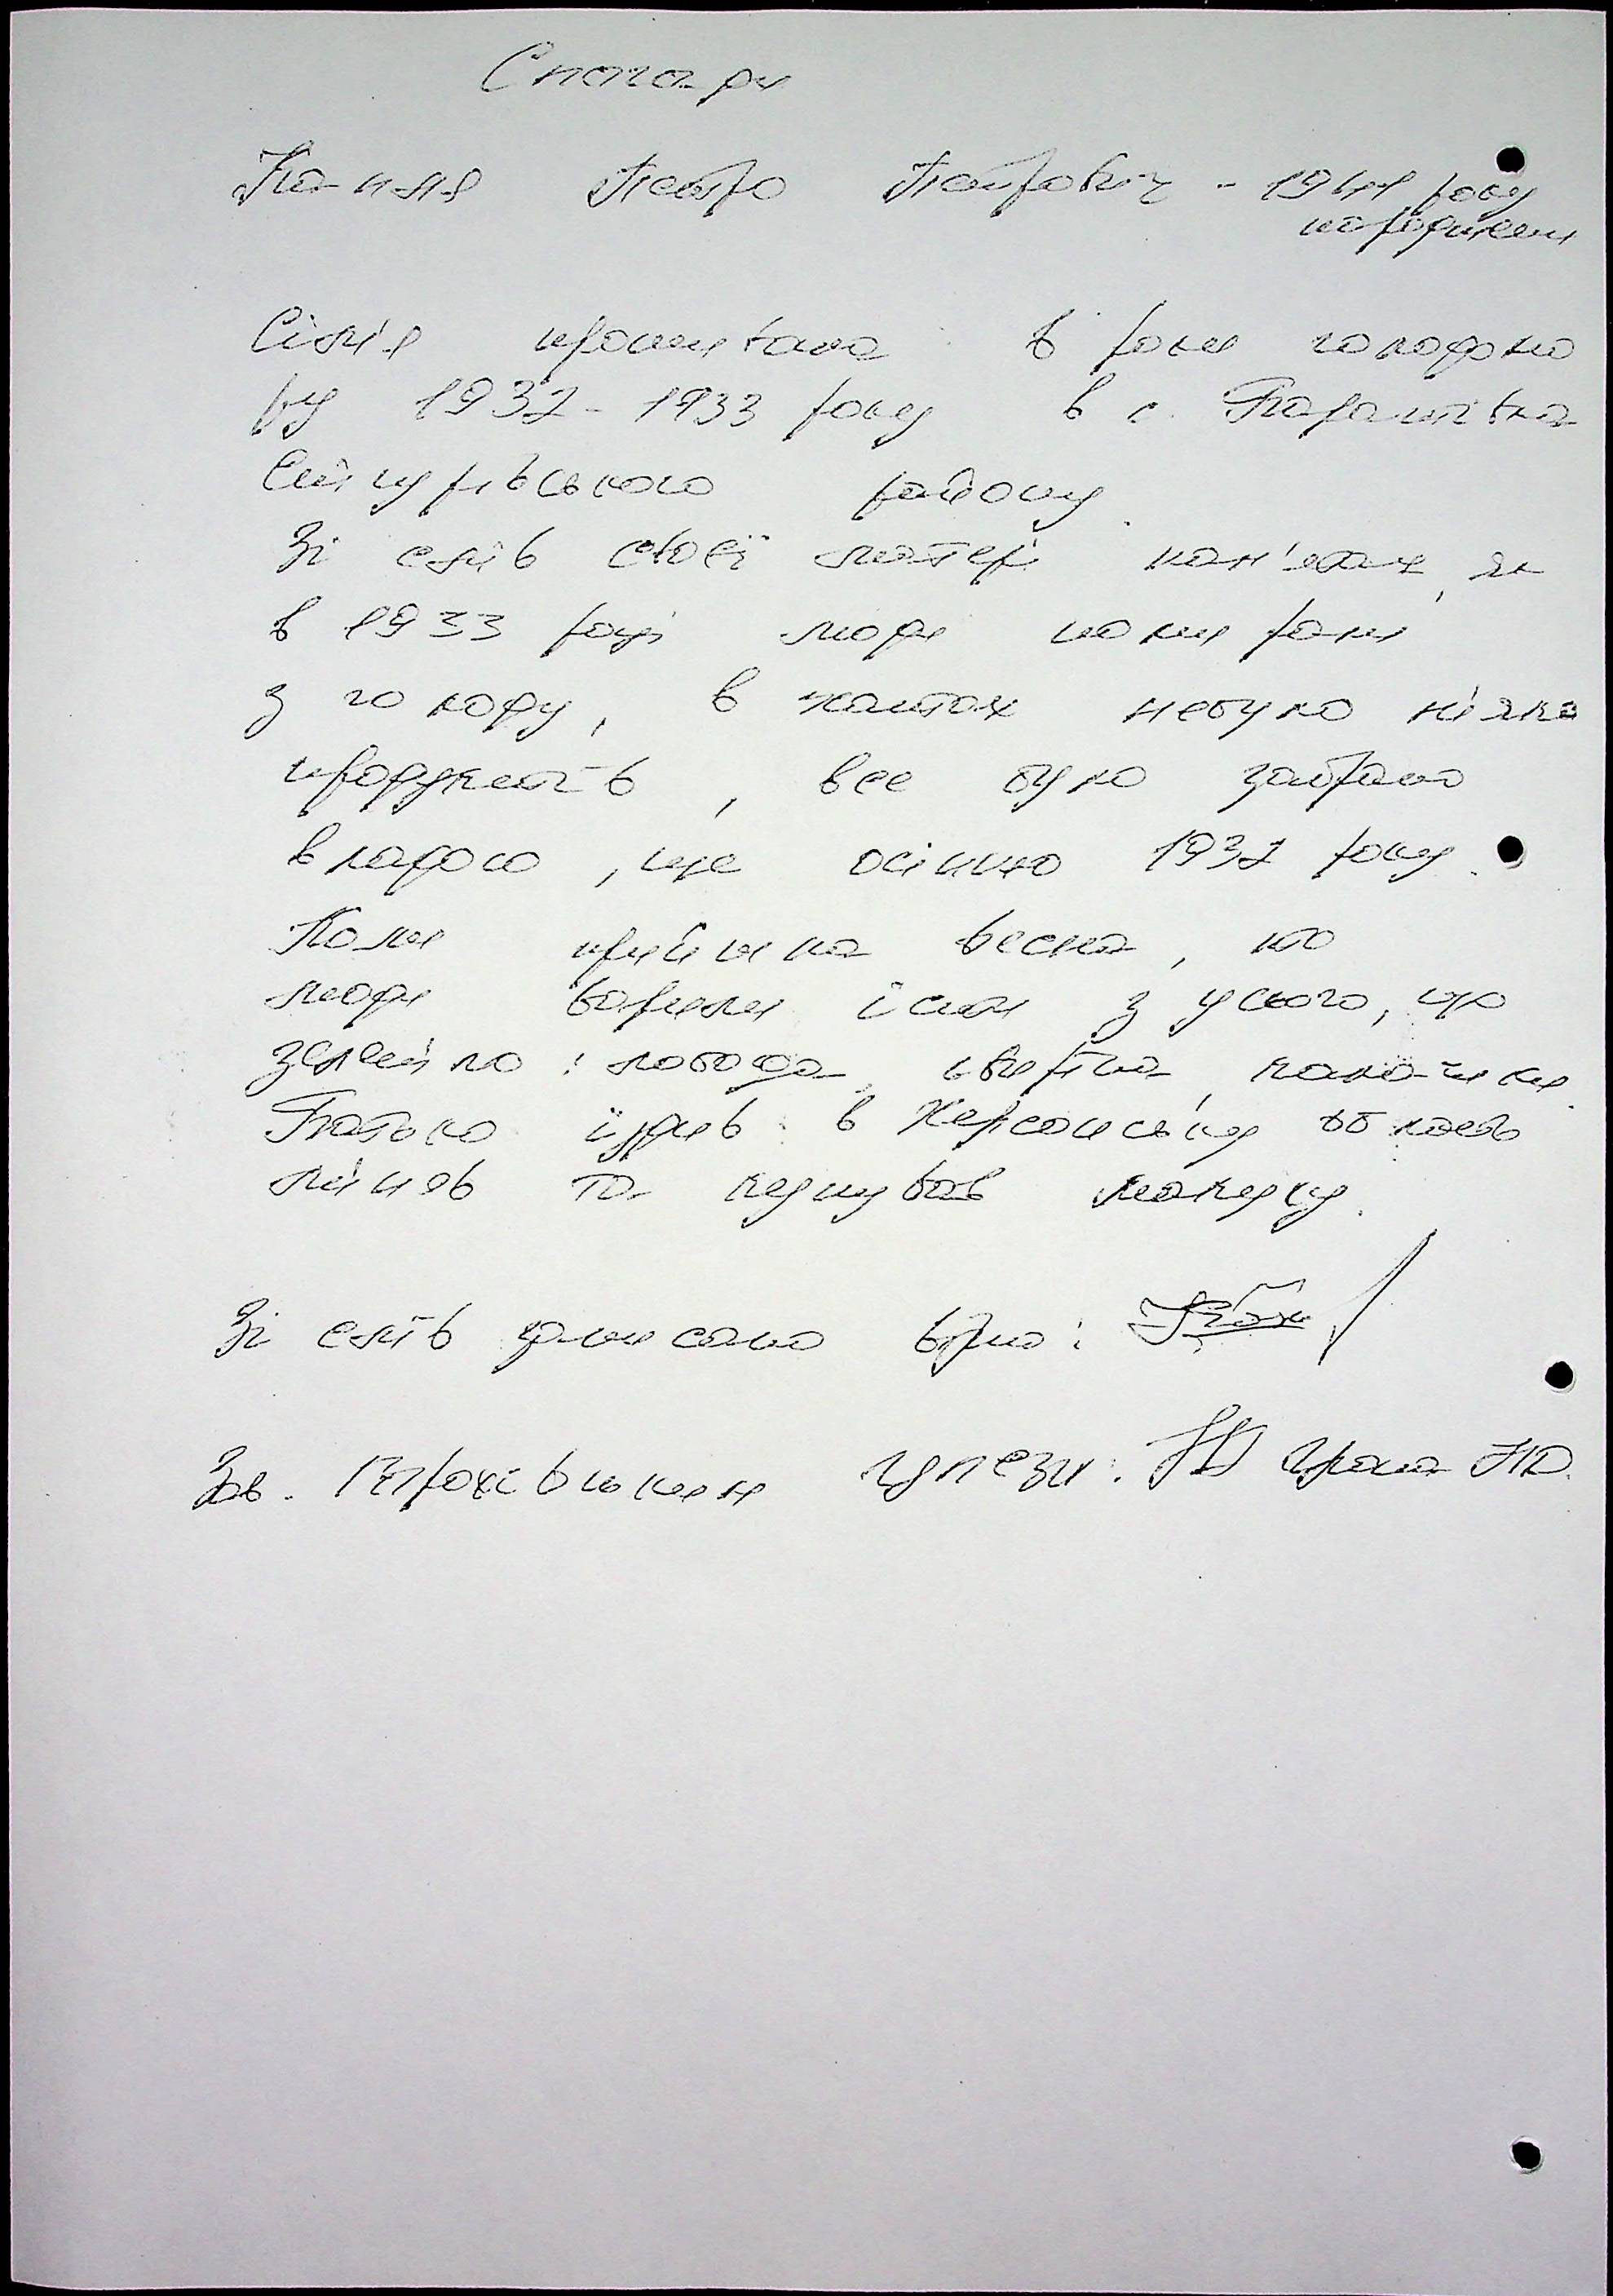 Спогади
Петро Петрович - 1941 року
народження
Сім'я проживала в роки голодомо
ру 1932-1933 року в с.
Снігурівського району.
Зі слів своєї матері пам'ятаю, як
в 1933 році люди помирали
з голоду, в хатах небуло ніяких
продуктів, все було забрано
владою, ще осінню 1932 року.
Коли прийшла весна, то
люди варили їжу з усього, що
зеленіло: лобода, калачики.
Батько їздив в Херсонську область
міняв та купував макуху.
Зі слів записано вірно:
Зав. бібліотекою